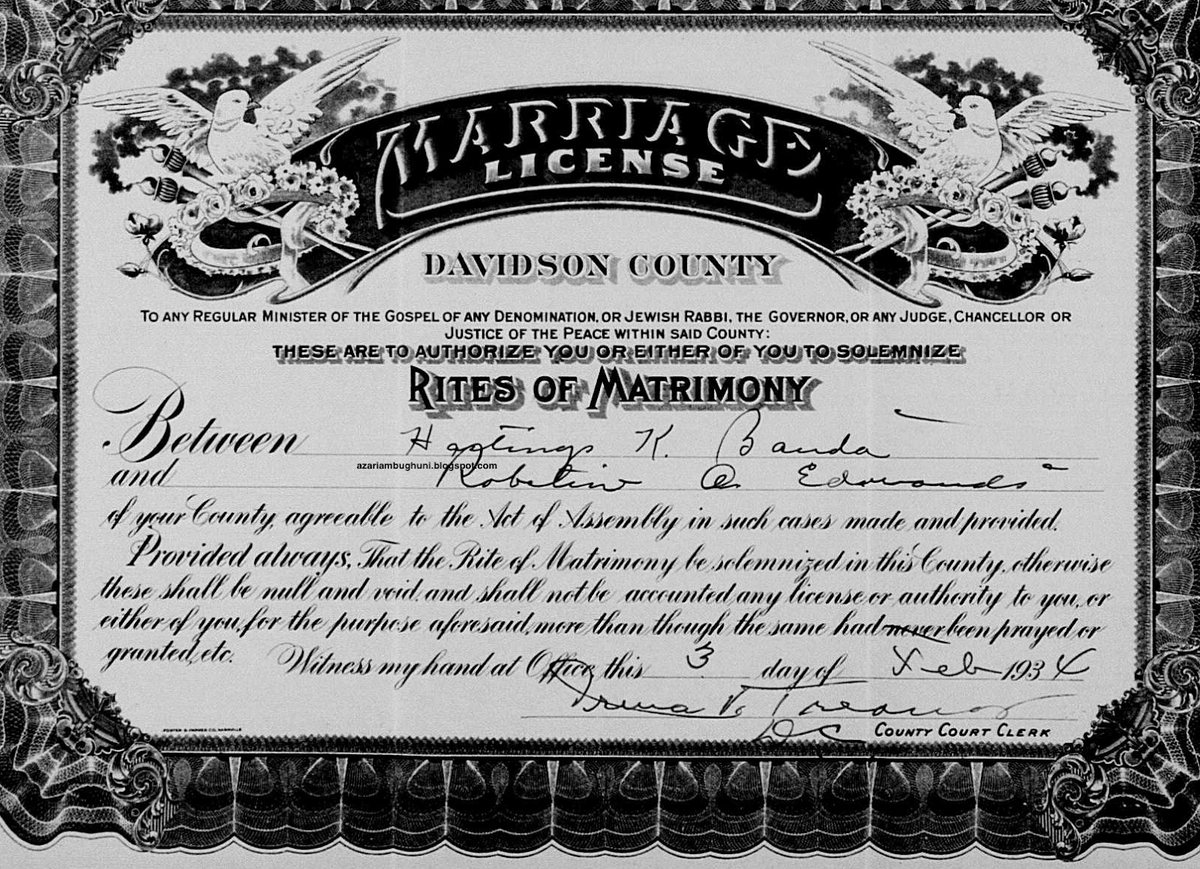 MARRIAGE
LICENSE
DAVIDSON COUNTY
TO ANY REGULAR MINISTER OF THE GOSPEL OF ANY DENOMINATION, OR JEWISH RABBI, THE GOVERNOR, OR ANY JUDGE, CHANCELLOR OR
JUSTICE OF THE PEACE WITHIN SAID COUNTY:
THESE ARE TO AUTHORIZE YOU OR EITHER OF YOU TO SOLEMNIZE
RITES OF MATRIMONY
Between Hastings K. Banda
azariambughuni.blogspot.com
and Edwards
of your County, agreeable to the Act of Assembly in such cases made and provided.
Provided always, That the Rite of Matrimony be solemnized in this County, otherwise
these shall be null and void, and shall not be accounted any license or authority to you, or
either of you, for the purpose aforesaid, more than though the same had never been prayed or
granted, etc. Witness my hand at Office, this 3 day of Feb 1934
COUNTY COURT CLERK